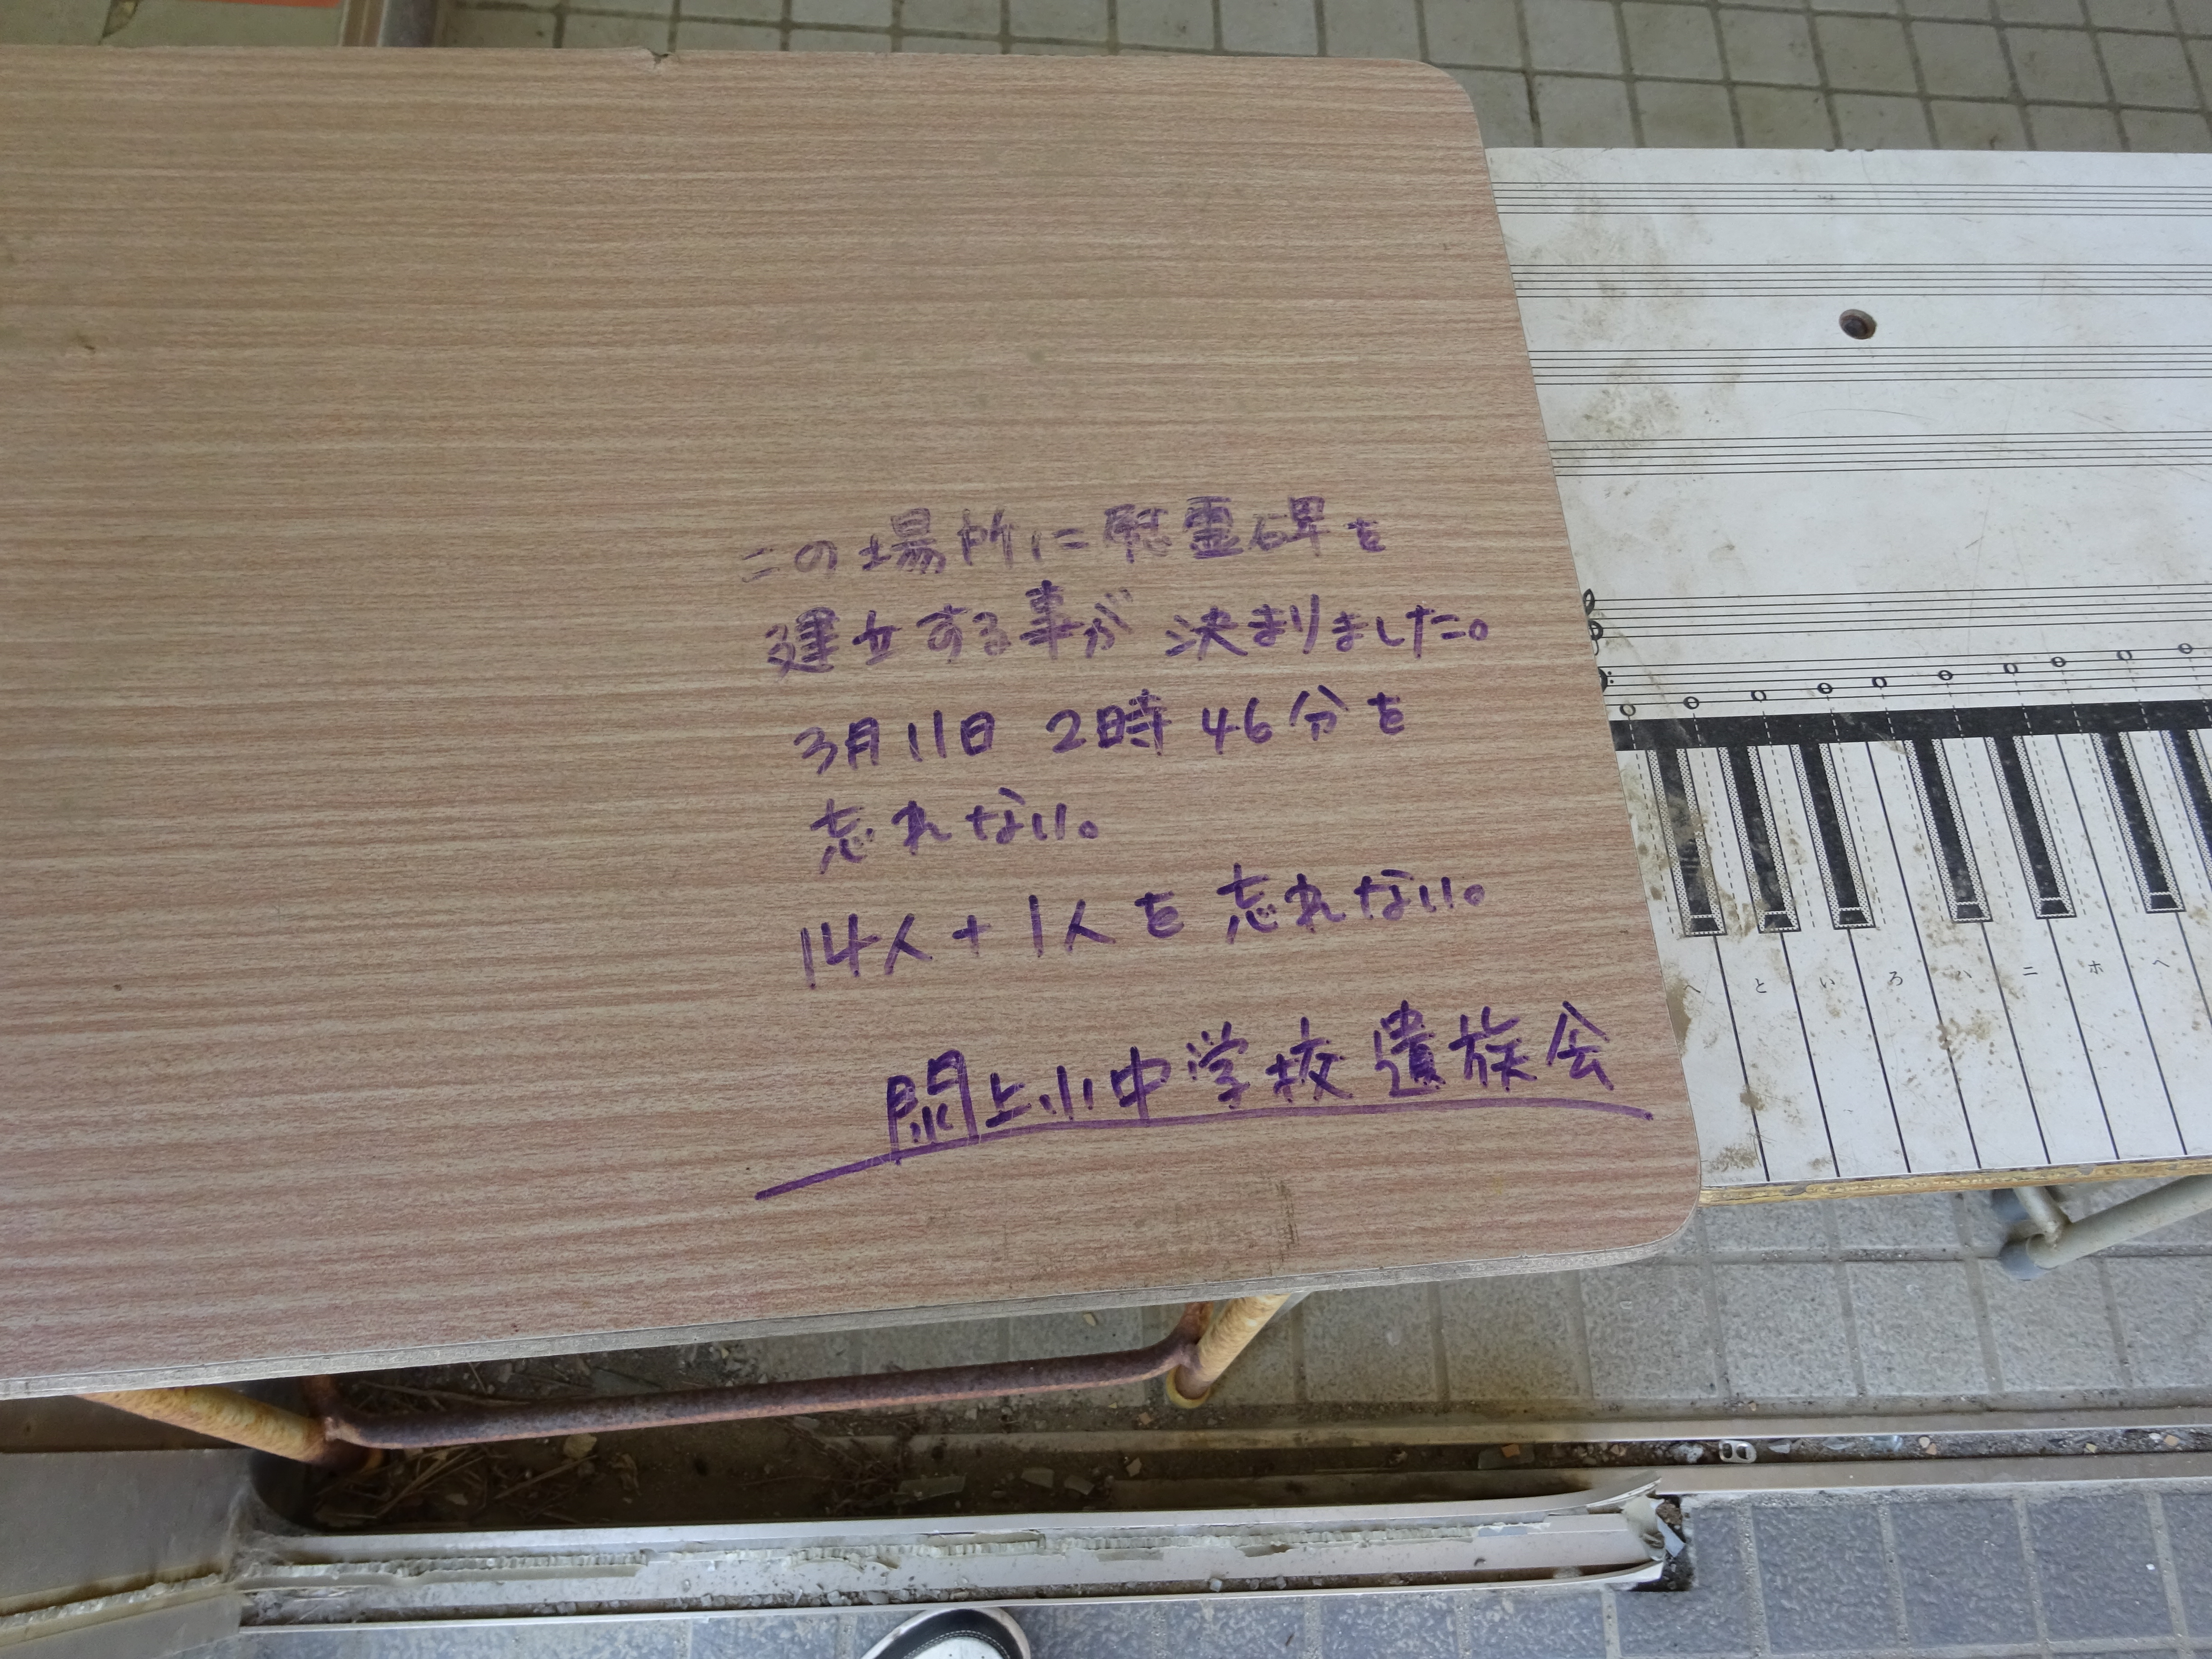 この場所に慰霊碑を
建立する事が決まりました。
3月11日 2時46分を
忘れない。
14人+1人を忘れない。
閖上小中学校遺族会
へ と い ろ ハ ニ ホ ヘ